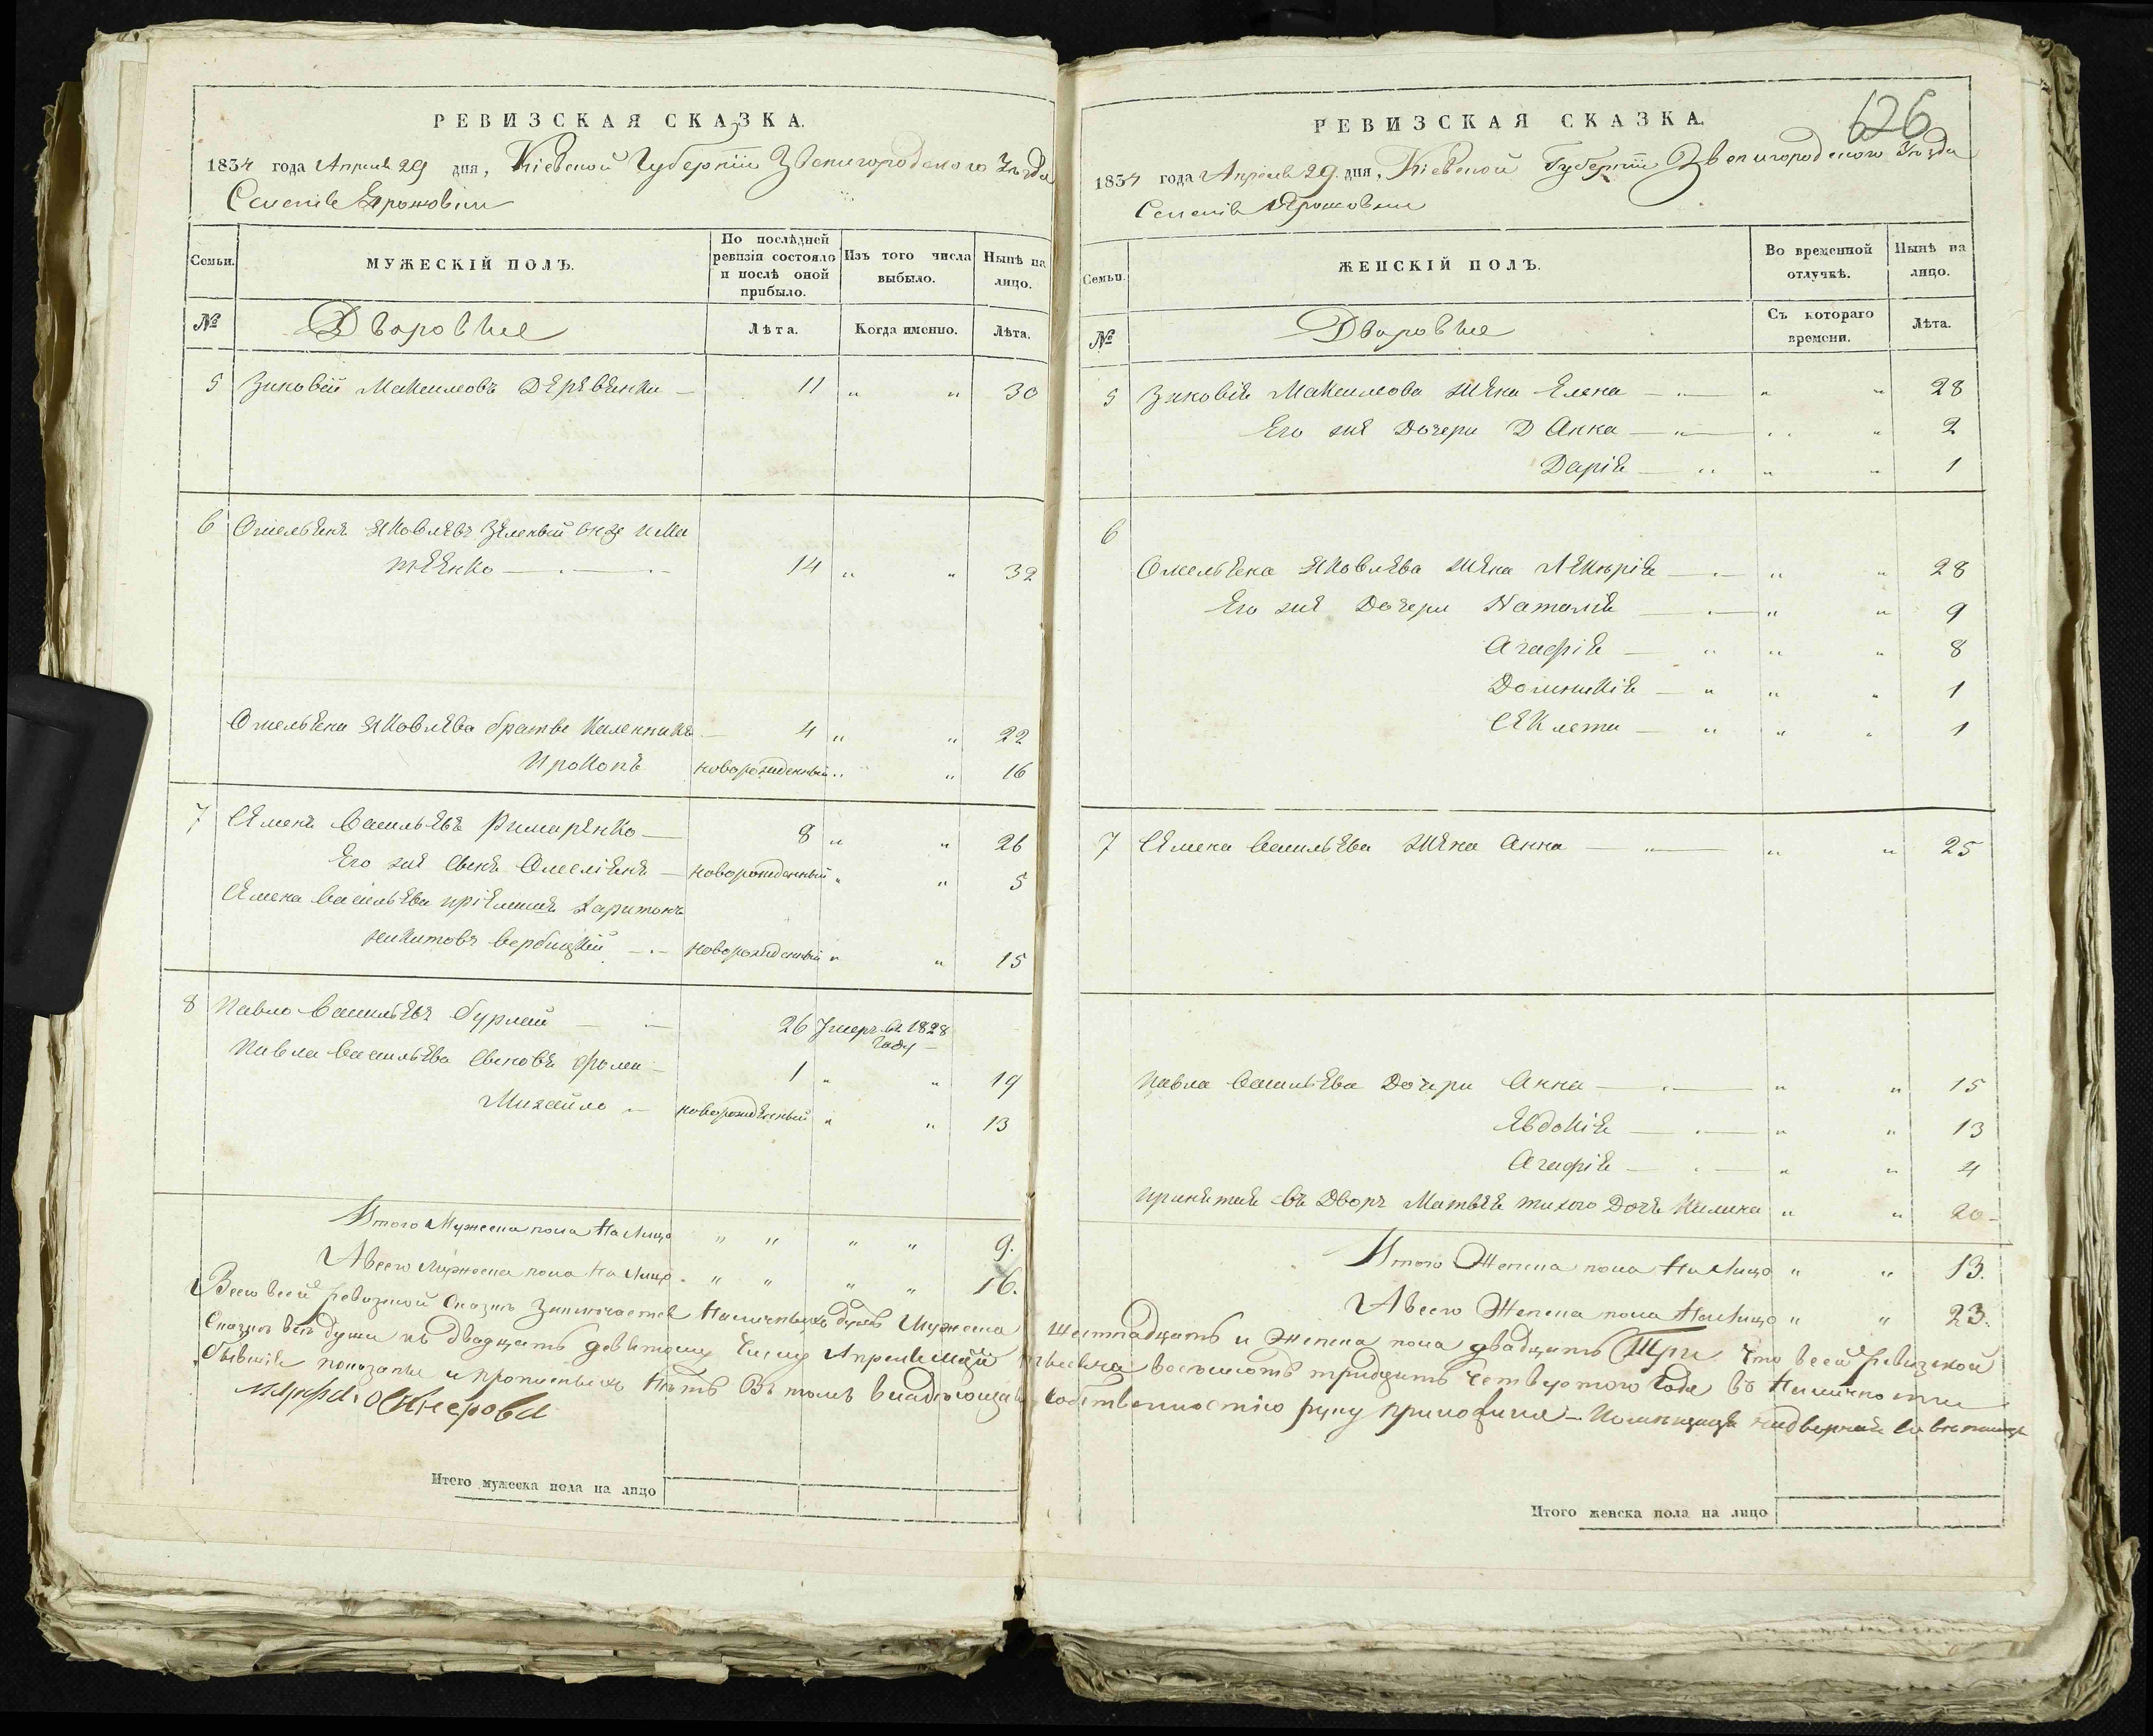 РЕВИЗСКАЯ СКАЗКА.
1834 года Апреля 29 дня, Кіевской Губерніи Звенигородского Уезда
Селенія Ярошовки
Семьи.
МУЖЕСКІЙ ПОЛЪ.
По послѣдней ревизіи состояло и послѣ оной прибыло.
Изъ того числа выбыло.
Нынѣ на лицо.
№
Дворовые
Лѣта.
Когда именно.
Лѣта.
5 Зиновій Максимовъ Деревянко 11 „ „ 30
6 Омельянъ Яковлевъ Зеленый онже и Ма
тѣенко 14 „ „ 32
Омельяна Яковлева братья Каленникъ 4 „ „ 22
Прокопъ новорожденный „ „ 16
7 Семенъ Васильевъ Римаренко 8 „ „ 26
Его же сынъ Омеліянъ новорожденный „ „ 5
Семена Васильева пріемишъ Харитонъ
Никитовъ Вербицкій новорожденный „ „ 15
8 Павло Васильевъ Бурлай 26 Умеръ въ 1828
Году
Павла Васильева сыновья Фома 1 „ „ 19
Михайло новорожденный „ „ 13
Итого Мужеска пола На Лицо „ „ „ „ 9.
А всего Мужеска пола На Лицо „ „ „ „ 16.
Всего въ сей ревизской Сказкѣ Заключается Наличныхъ душъ Мужеска
Сказкѣ всѣ души къ двадцать девятому Числу Апреля
бывшія показаны и прописныхъ Нѣтъ Въ томъ
Итого мужеска пола на лицо
626
РЕВИЗСКАЯ СКАЗКА.
1834 года Апреля 29 дня, Кіевской Губерніи Звенигородского Уезда
Селенія Ярошовки
Семьи.
ЖЕНСКІЙ ПОЛЪ.
Во временной отлучкѣ.
Нынѣ на лицо.
№
Дворовые
Съ котораго времени.
Лѣта.
5 Зиновія Максимова жена Елена „ „ 28
Его же Дочери Анна „ „ 2
Дарія „ „ 1
6
Омельяна Яковлева жена „ „ 28
Его же Дочери Наталія „ „ 9
Агафія „ „ 8
Домникія „ „ 1
Феклета „ „ 1
7 Семена Васильева жена Анна „ „ 25
Павла Васильева Дочери Анна „ „ 15
Евдокія „ „ 13
Агафія „ „ 4
Принятая въ Дворъ Матвѣя Тихого Дочь Килина „ „ 20
Итого Женска пола На Лицо „ „ 13.
А всего Женска пола На Лицо „ „ 23.
Шестнадцать и Женска пола двадцать Три Что въ сей ревизской
восемьсотъ тридцать Четвертого Года въ Наличности
руку приложила Помѣщица надворная совѣтница
Итого женска пола на лицо